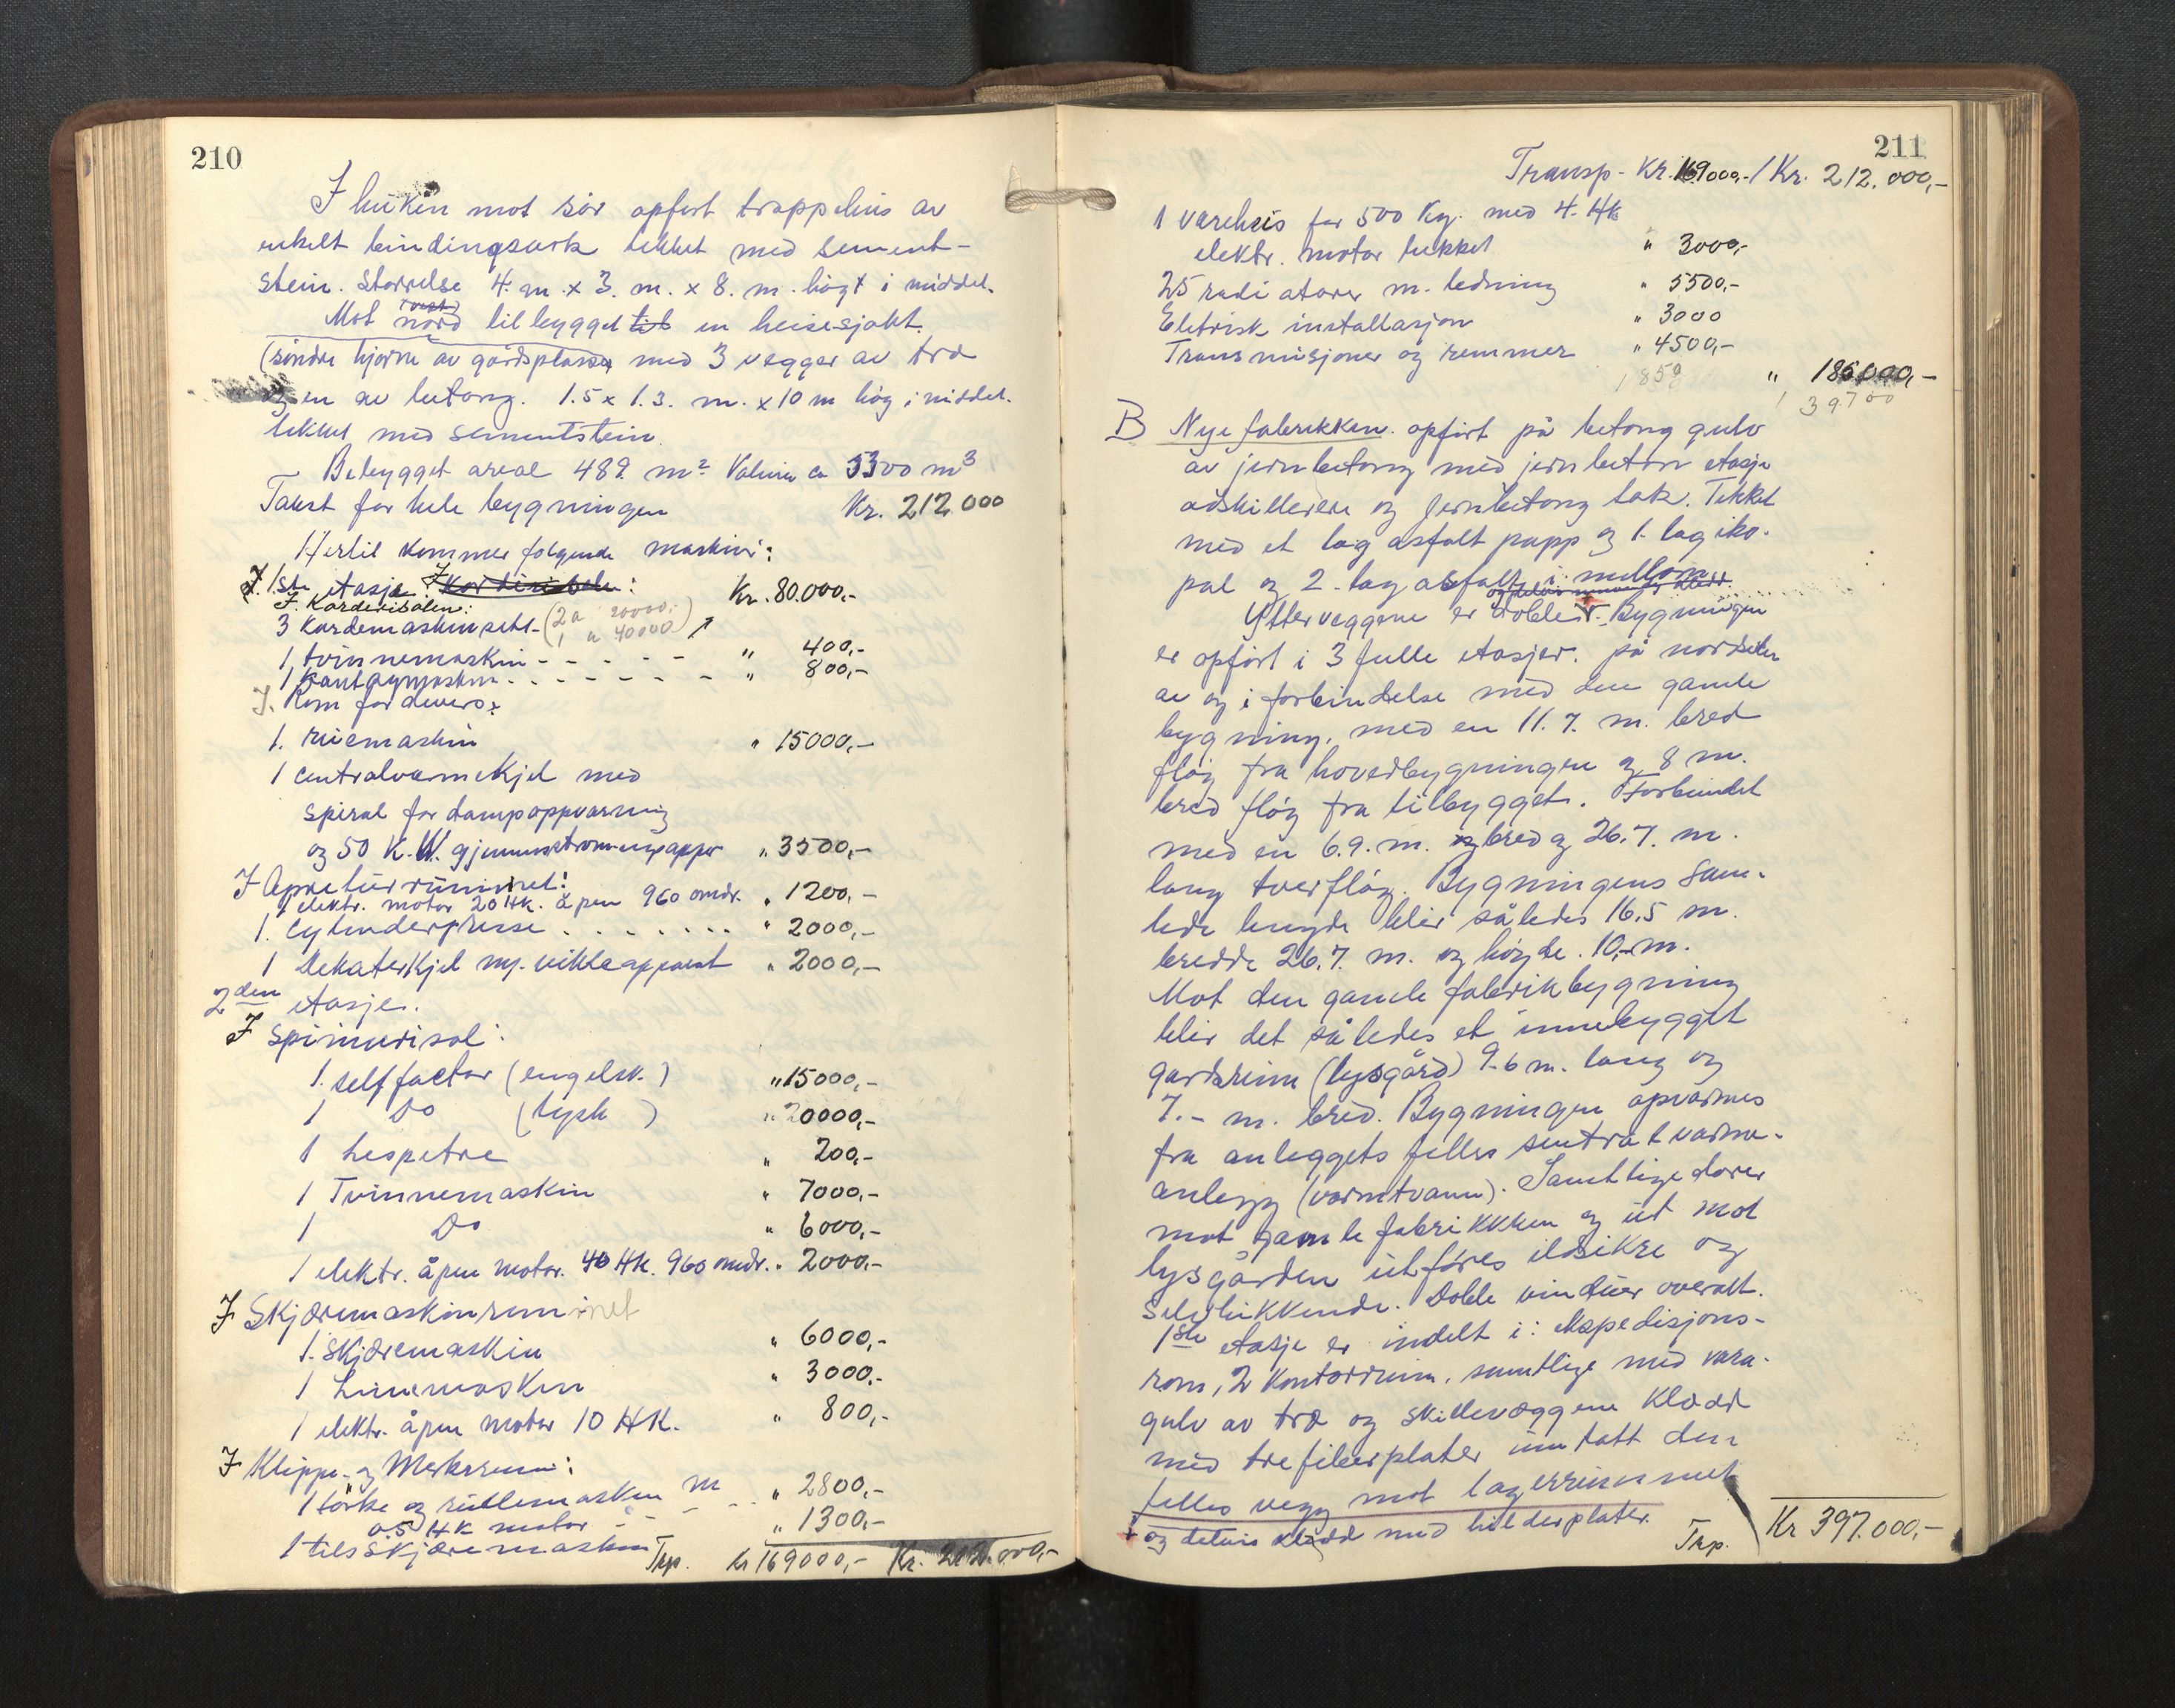 210
I huken mot sör opfört trappehus av
enkelt bindingsverk tekket med sement-
stein. Störrelse 4. m. x 3. m. x 8. m. högt i middel.
Mot nord tilbygget til en heisesjakt.
(söndre hjörne av gårdsplassen med 3 vegger av træ
og en av betong. 1.5 x 1.3. m. x 10 m hög i middel.
tekket med sementstein.
Bebygget areal 489. m² Volum ca 5300 m³
Takst for hele bygningen Kr. 212.000
Hertil kommer fölgende maskiner:
I. 1ste etasje. I Karderisalen: Kr. 80.000,-
I. Karderisalen:
3 Kardemaskinsett - (2 a 20000,-
1 a 40000)
1 tvinnemaskin - - - - - " 400,-
1 - - - - - - - " 800,-
I. Rom for divers:
1. rivemaskin " 15000,-
1 centralvarmekjel med
spiral for dampoppvarming
og 50 K.W. gjennemströmningsappar " 3500,-
I Apreturrummet:
1 elektr. motor 20 HK. åpen 960 omdr. " 1200,-
1. Cylinderpresse . . . . . . . . " 2000,-
1 Dekaterkjel m. vikleapparat " 2000,-
2den etasje.
I Spinnerisal:
1. selffactor (engelsk.) " 15000,-
1 Do (tysk) " 20000,-
1 Lespetre " 200,-
1 Tvinnemaskin " 7000,-
1 Do " 6000,-
1 elektr. åpen motor. 40 HK. 960 omdr. " 2000,-
I Skjæremaskinrummet
1. Skjæremaskin " 6000,-
1 Limemaskin " 3000,-
1 elektr. åpen motor 10 HK. " 800,-
I Klippe- og Merkerum:
1 törke og rullemaskin m " 2800,-
0.5 HK motor - - " 1300,-
1 tilsskjæremaskin
Trp. Kr 169000,- Kr. 212.000,-
211
Transp - Kr. 169000,- / Kr. 212.000,-
1 vareheis for 500 Kg. med 4. HK
elektr. motor tekket " 3000,-
25 radiatorer m. ledning " 5500,-
Eletrisk installasjon " 3000
Transmisjoner og remmer " 4500,-
1850 " 185000,-
39700
B Nye fabrikken. opfört på betong gulv
av jernbetong med jernbeton etasje
adskillere og jernbetong tak. Tekket
med et lag asfalt papp og 1. lag iko-
pal og 2. lag asfalt i mellom
Ytterveggene er doble. Bygningen
er opfört i 3 fulle etasjer. på nordsiden
av og i forbindelse med den gamle
bygning, med en 11.7. m. bred
flöy fra hovedbygningen og 8 m.
bred flöy fra tilbygget. Forbundet
med en 6.9. m. bred og 26.7. m.
lang tverflöy. Bygningens sam-
lede lengde blir således 16,5 m.
bredde 26.7. m. og höyde. 10,- m.
Mot den gamle fabrikbygning
blir det således et innebygget
gardsrum (lysgård) 9.6 m. lang og
7.- m. bred. Bygningen opvarmes
fra anleggets felles sentralvarme-
anlegg (varmtvann). Samtlige dörer
mot gamle fabrikkken og ut mot
lysgården utföres ildsikre og
selvlukkende. Doble vinduer overalt.
1ste etasje er indelt i: ekspedisjons-
rom, 2 Kontorrum, samtlige med vara-
gulv av træ og skilleveggene klædd
med trefiberplater unntatt den
felles vegg mot lagerrummet
og delvis klædd med hulderplater.
Trp. Kr 397.000,-